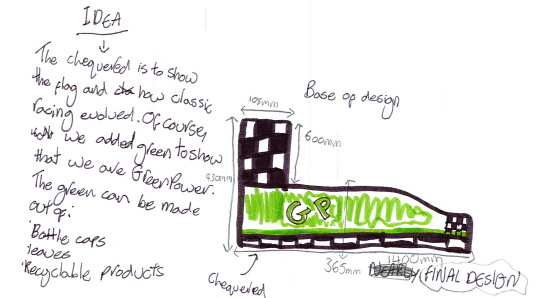 IDEA
The chequered is to show
the flag and how classic
racing evolved. Of course,
we added green to show
that we are GreenPower.
The green can be made
out of:
Bottle caps
leaves
Recyclable products
Base op design
105mm
600mm
930mm
GP
365mm
1400mm
Chequered
FINAL DESIGN